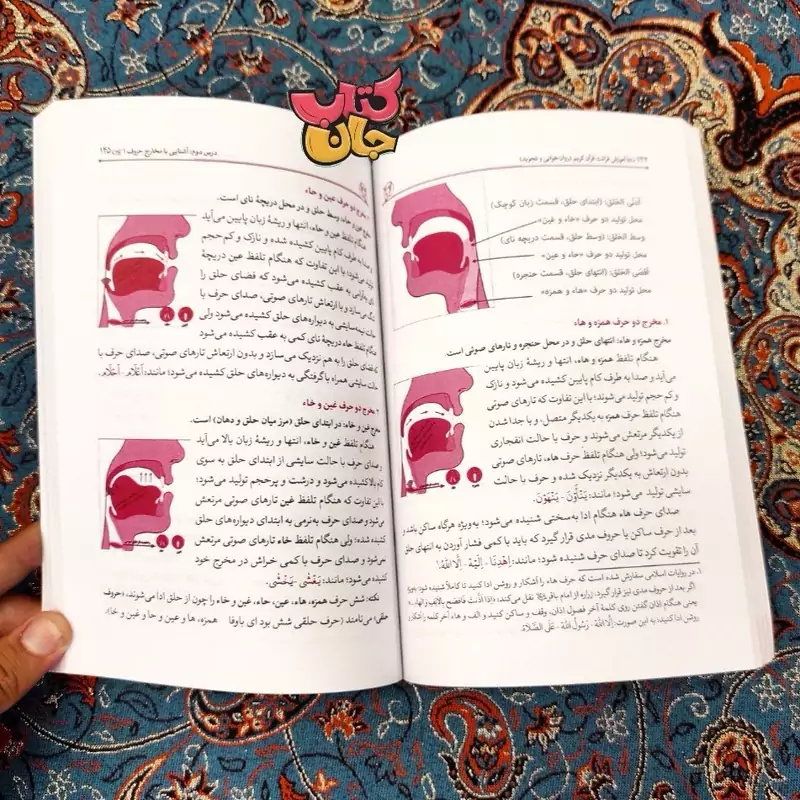 کتاب
جان
۱۴۴ درسآموزش قرائت قرآن کریم (روان‌خوانی و تجوید)
أدنَی الحَلق: (ابتدای حلق، قسمت زبان کوچک)
محل تولید دو حرف «خاء و غین»
وسط الحَلق: (وسط حلق، قسمت دریچه نای)
محل تولید دو حرف «حاء و عین»
أقصَی الحَلق: (انتهای حلق، قسمت حنجره)
محل تولید دو حرف «هاء و همزه»
۱. مخرج دو حرف همزه و هاء
مخرج همزه و هاء، انتهای حلق و در محل حنجره و تارهای صوتی است.
هنگام تلفظ همزه و هاء، انتها و ریشهٔ زبان پایین
می‌آید و صدا به طرف کام پایین کشیده می‌شود و نازک
و کم حجم تولید می‌شوند؛ با این تفاوت که تارهای صوتی
هنگام تلفظ حرف همزه به یکدیگر متصل، و با جدا شدن
از یکدیگر مرتعش می‌شوند و حرف با حالت انفجاری
تولید می‌شود؛ ولی هنگام تلفظ حرف هاء، تارهای صوتی
بدون ارتعاش به یکدیگر نزدیک شده و حرف با حالت
سایشی تولید می‌شود؛ مانند: یَنْأَوْنَ - یَنْهَوْنَ.
صدای حرف هاء هنگام ادا به‌سختی شنیده می‌شود؛ به‌ویژه هرگاه ساکن باشد و
بعد از حرف ساکن یا حروف مدی قرار گیرد که باید با کمی فشار آوردن به انتهای حلق
آن را تقویت کرد تا صدای حرف شنیده شود؛ مانند: اِهْدِنَا - إِلَیْهَ - إِلَّا اللّٰهُ.۱
۱. در روایات اسلامی سفارش شده است که حرف هاء را آشکار و روشن ادا کنید تا کاملاً شنیده شود، به‌ویژه
اگر بعد از حروف مدی نیز قرار گیرد. زراره از امام باقر نقل می‌کند، «إذا أذّنت فأفصح بالألف و الهاء...»
یعنی هنگام اذان گفتن روی کلمهٔ آخر فصول اذان، وقف و ساکن کنید و الف و هاء آخر کلمه را آشکار و
روشن ادا کنید؛ به این صورت: إِلَّا اللّٰهْ - رَسُولُ اللّٰهْ - عَلَی الصَّلَاةْ.
درس دوم: آشنایی با مخارج حروف ۱۴۵
مخرج دو حرف عین و حاء
مخرج عین و حاء، وسط حلق و در محل دریچهٔ نای است.
هنگام تلفظ عین و حاء، انتها و ریشهٔ زبان پایین می‌آید
و صدا به طرف کام پایین کشیده شده و نازک و کم حجم
تولید می‌شود؛ با این تفاوت که هنگام تلفظ عین دریچهٔ
نای به‌آرامی به عقب کشیده می‌شود که فضای حلق را
تنگ می‌سازد و با ارتعاش تارهای صوتی، صدای حرف با
حالت نیمه‌سایشی به دیواره‌های حلق کشیده می‌شود ولی
هنگام تلفظ حاء دریچهٔ نای کمی به عقب کشیده می‌شود
که فضای حلق را به هم نزدیک می‌سازد و بدون ارتعاش تارهای صوتی، صدای حرف با
حالت سایشی همراه با گرفتگی به دیواره‌های حلق کشیده می‌شود؛ مانند: أَعْلَام - أَحْلَام.
مخرج دو حرف غین و خاء
مخرج غین و خاء، در ابتدای حلق (مرز میان حلق و دهان) است.
هنگام تلفظ غین و خاء، انتها و ریشهٔ زبان بالا می‌آید
و صدای حرف با حالت سایشی از ابتدای حلق به سوی
کام بالا کشیده می‌شود و درشت و پرحجم تولید می‌شود؛
با این تفاوت که هنگام تلفظ غین تارهای صوتی مرتعش
می‌شود و صدای حرف به‌نرمی به ابتدای دیواره‌های حلق
کشیده شده؛ ولی هنگام تلفظ خاء تارهای صوتی مرتعش
نمی‌شود و صدای حرف با کمی خراش در مخرج خود
شنیده می‌شود؛ مانند: یَغْشَی - یَخْشَی.
نکته: شش حرف همزه، هاء، عین، حاء، غین و خاء را چون از حلق ادا می‌شوند، «حروف
حلقی» می‌نامند (حرف حلقی شش بود ای باوفا همزه، ها و عین و حا و غین و خا).